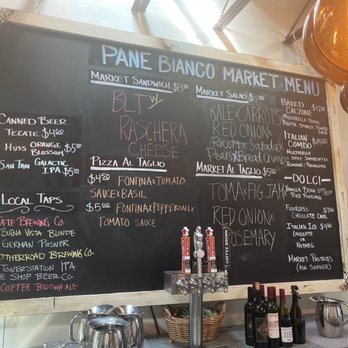 PANE BIANCO MARKET MENU
CANNED BEER
TECATE $4.00
HUSS ORANGE
BLOSSOM $5
SAN TAN GALACTIC
I.P.A. $5
LOCAL TAPS
BREWING CO.
BUENA VISTA BLONDE
GERMAN PILSNER
BREWING CO.
TOWERSTATION IPA
SHOP BEER CO.
COFFEE BROWN ALE
MARKET SANDWICH
BLT w/
RASCHERA
CHEESE
PIZZA AL TAGLIO
$4.50 FONTINA & TOMATO
SAUCE & BASIL
$5.00 FONTINA & PEPPERONI &
TOMATO SAUCE
MARKET SALAD
KALE & CARROTS
RED ONION
Ricotta Salata &
Pears & Bread Crumbs
MARKET AL TAGLIO
TOMA & FIG JAM
RED ONION &
ROSEMARY
BAKED
CALZONE
ITALIAN
COMBO
DOLCI
VANILLA BEAN
RICE PUDDING
FLOURLESS
CHOCOLATE CAKE
ITALIAN ICE $4
CHOCOLATE
or
NUTMEG
MARKET PASTRIES
(ASK SERVER)
COFFEE BROWN